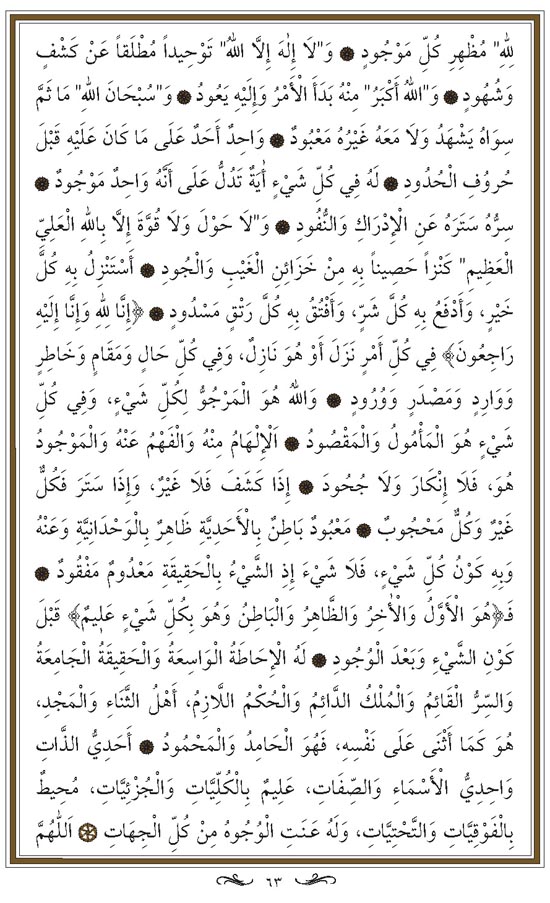 لِلّٰهِ" مُظْهِرِ كُلِّ مَوْجُودٍ ۞ وَ"لَا إِلٰهَ إِلَّا اللهُ" تَوْحِيداً مُطْلَقاً عَنْ كَشْفٍ
وَشُهُودٍ ۞ وَ"اللهُ أَكْبَرُ" مِنْهُ بَدَأَ الْأَمْرُ وَإِلَيْهِ يَعُودُ ۞ وَ"سُبْحَانَ اللهِ" مَا ثَمَّ
سِوَاهُ يَشْهَدُ وَلَا مَعَهُ غَيْرُهُ مَعْبُودٌ ۞ وَاحِدٌ أَحَدٌ عَلَى مَا كَانَ عَلَيْهِ قَبْلَ
حُرُوفِ الْحُدُودِ ۞ لَهُ فِي كُلِّ شَيْءٍ أَيَةٌ تَدُلُّ عَلَى أَنَّهُ وَاحِدٌ مَوْجُودٌ ۞
سِرُّهُ سَتَرَهُ عَنِ الْإِدْرَاكِ وَالنُّفُودِ ۞ وَ"لَا حَوْلَ وَلَا قُوَّةَ إِلَّا بِاللهِ الْعَلِيِّ
الْعَظِيمِ" كَنْزاً حَصِيناً بِهِ مِنْ خَزَائِنِ الْغَيْبِ وَالْجُودِ ۞ أَسْتَنْزِلُ بِهِ كُلَّ
خَيْرٍ، وَأَدْفَعُ بِهِ كُلَّ شَرٍّ، وَأَفْتُقُ بِهِ كُلَّ رَتْقٍ مَسْدُودٍ ۞ ﴿إِنَّا لِلهِ وَإِنَّا إِلَيْهِ
رَاجِعُونَ﴾ فِي كُلِّ أَمْرٍ نَزَلَ أَوْ هُوَ نَازِلٌ، وَفِي كُلِّ حَالٍ وَمَقَامٍ وَخَاطِرٍ
وَوَارِدٍ وَمَصْدَرٍ وَوُرُودٍ ۞ وَاللهُ هُوَ الْمَرْجُوُّ لِكُلِّ شَيْءٍ، وَفِي كُلِّ
شَيْءٍ هُوَ الْمَأْمُولُ وَالْمَقْصُودُ ۞ اَلْإِلْهَامُ مِنْهُ وَالْفَهْمُ عَنْهُ وَالْمَوْجُودُ
هُوَ، فَلَا إِنْكَارَ وَلَا جُحُودَ ۞ إِذَا كَشَفَ فَلَا غَيْرٌ، وَإِذَا سَتَرَ فَكُلٌّ
غَيْرٌ وَكُلٌّ مَحْجُوبٌ ۞ مَعْبُودٌ بَاطِنٌ بِالْأَحَدِيَّةِ ظَاهِرٌ بِالْوَحْدَانِيَّةِ وَعَنْهُ
وَبِهِ كَوْنُ كُلِّ شَيْءٍ، فَلَا شَيْءَ إِذِ الشَّيْءُ بِالْحَقِيقَةِ مَعْدُومٌ مَفْقُودٌ ۞
فَـ﴿هُوَ الْأَوَّلُ وَالْأٰخِرُ وَالظَّاهِرُ وَالْبَاطِنُ وَهُوَ بِكُلِّ شَيْءٍ عَلِيمٌ﴾ قَبْلَ
كَوْنِ الشَّيْءِ وَبَعْدَ الْوُجُودِ ۞ لَهُ الْإِحَاطَةُ الْوَاسِعَةُ وَالْحَقِيقَةُ الْجَامِعَةُ
وَالسِّرُّ الْقَائِمُ وَالْمُلْكُ الدَّائِمُ وَالْحُكْمُ اللَّازِمُ، أَهْلُ الثَّنَاءِ وَالْمَجْدِ،
هُوَ كَمَا أَثْنَى عَلَى نَفْسِهِ، فَهُوَ الْحَامِدُ وَالْمَحْمُودُ ۞ أَحَدِيُّ الذَّاتِ
وَاحِدِيُّ الْأَسْمَاءِ وَالصِّفَاتِ، عَلِيمٌ بِالْكُلِّيَّاتِ وَالْجُزْئِيَّاتِ، مُحِيطٌ
بِالْفَوْقِيَّاتِ وَالتَّحْتِيَّاتِ، وَلَهُ عَنَتِ الْوُجُوهُ مِنْ كُلِّ الْجِهَاتِ ۞ اَللّٰهُمَّ
٦٣